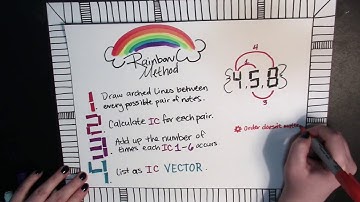 Rainbow
Method
1 Draw arched lines between
every possible pair of notes.
2 Calculate IC for each pair.
3 Add up the number of
times each IC 1-6 occurs
4 List as IC VECTOR.
4
4.5.8
3
Order doesn't